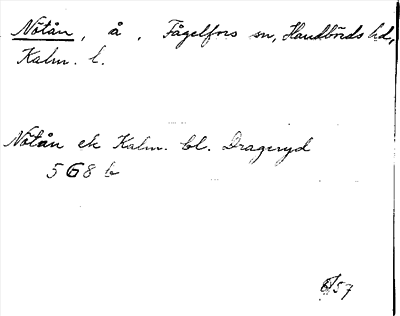 Nötån, å, Fågelfors sn, Handbörds hd,
Kalm. l.
Nötån ek Kalm. bl. Drageryd
5G8b
57